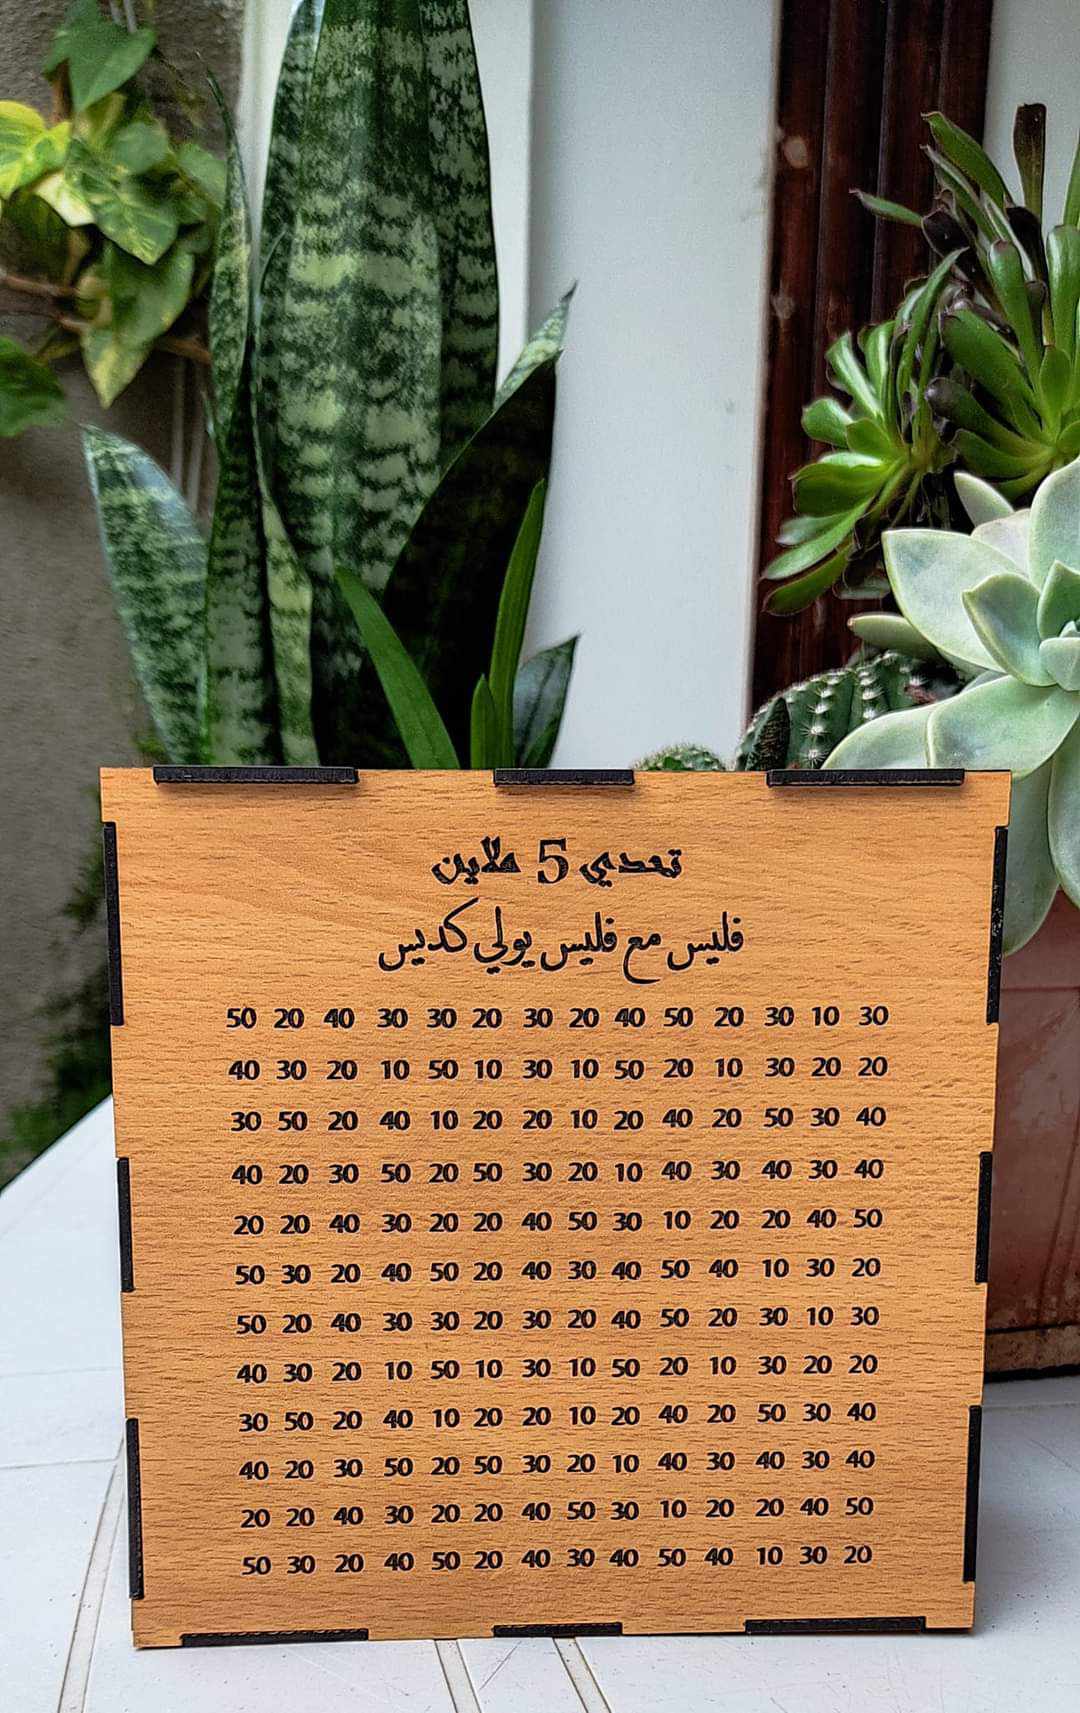 تحدي 5 ملاين
فليس مع فليس يولي كديس
50 20 40 30 30 20 30 20 40 50 20 30 10 30
40 30 20 10 50 10 30 10 50 20 10 30 20 20
30 50 20 40 10 20 20 10 20 40 20 50 30 40
40 20 30 50 20 50 30 20 10 40 30 40 30 40
20 20 40 30 20 20 40 50 30 10 20 20 40 50
50 30 20 40 50 20 40 30 40 50 40 10 30 20
50 20 40 30 30 20 30 20 40 50 20 30 10 30
40 30 20 10 50 10 30 10 50 20 10 30 20 20
30 50 20 40 10 20 20 10 20 40 20 50 30 40
40 20 30 50 20 50 30 20 10 40 30 40 30 40
20 20 40 30 20 20 40 50 30 10 20 20 40 50
50 30 20 40 50 20 40 30 40 50 40 10 30 20